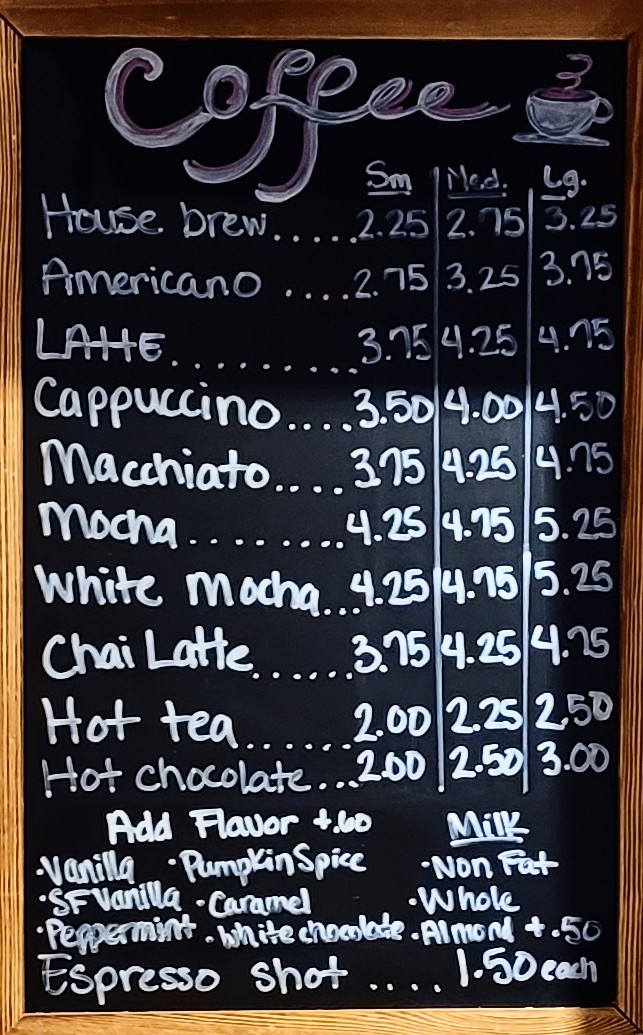 Coffee
Sm Med. Lg.
House brew.....2.25 2.75 3.25
Americano ....2.75 3.25 3.75
LAttE.........3.75 4.25 4.75
Cappuccino....3.50 4.00 4.50
Macchiato....3.75 4.25 4.75
Mocha........4.25 4.75 5.25
White Mocha...4.25 4.75 5.25
Chai Latte......3.75 4.25 4.75
Hot tea......2.00 2.25 2.50
Hot chocolate...2.00 2.50 3.00
Add Flavor +.60 Milk
·Vanilla ·Pumpkin Spice ·Non Fat
·SF Vanilla ·Caramel ·Whole
·Peppermint ·White chocolate ·Almond +.50
Espresso shot .... 1.50 each